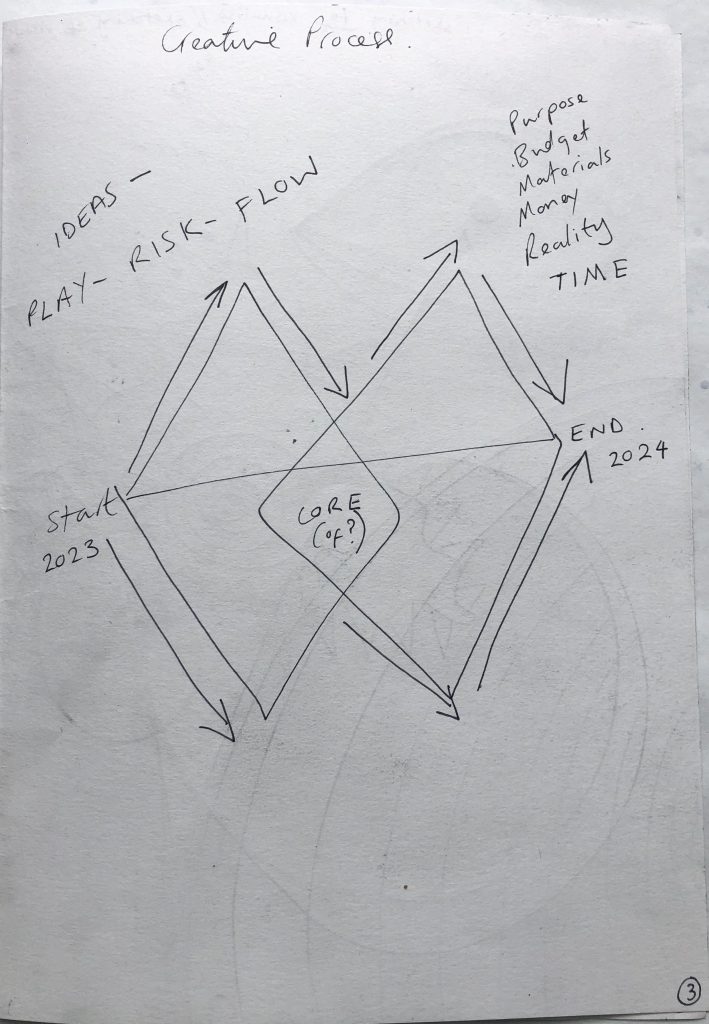 Creative Process.
IDEAS –
PLAY – RISK – FLOW
Purpose
Budget
Materials
Money
Reality
TIME
Start
2023
CORE
(of?)
END.
2024
3